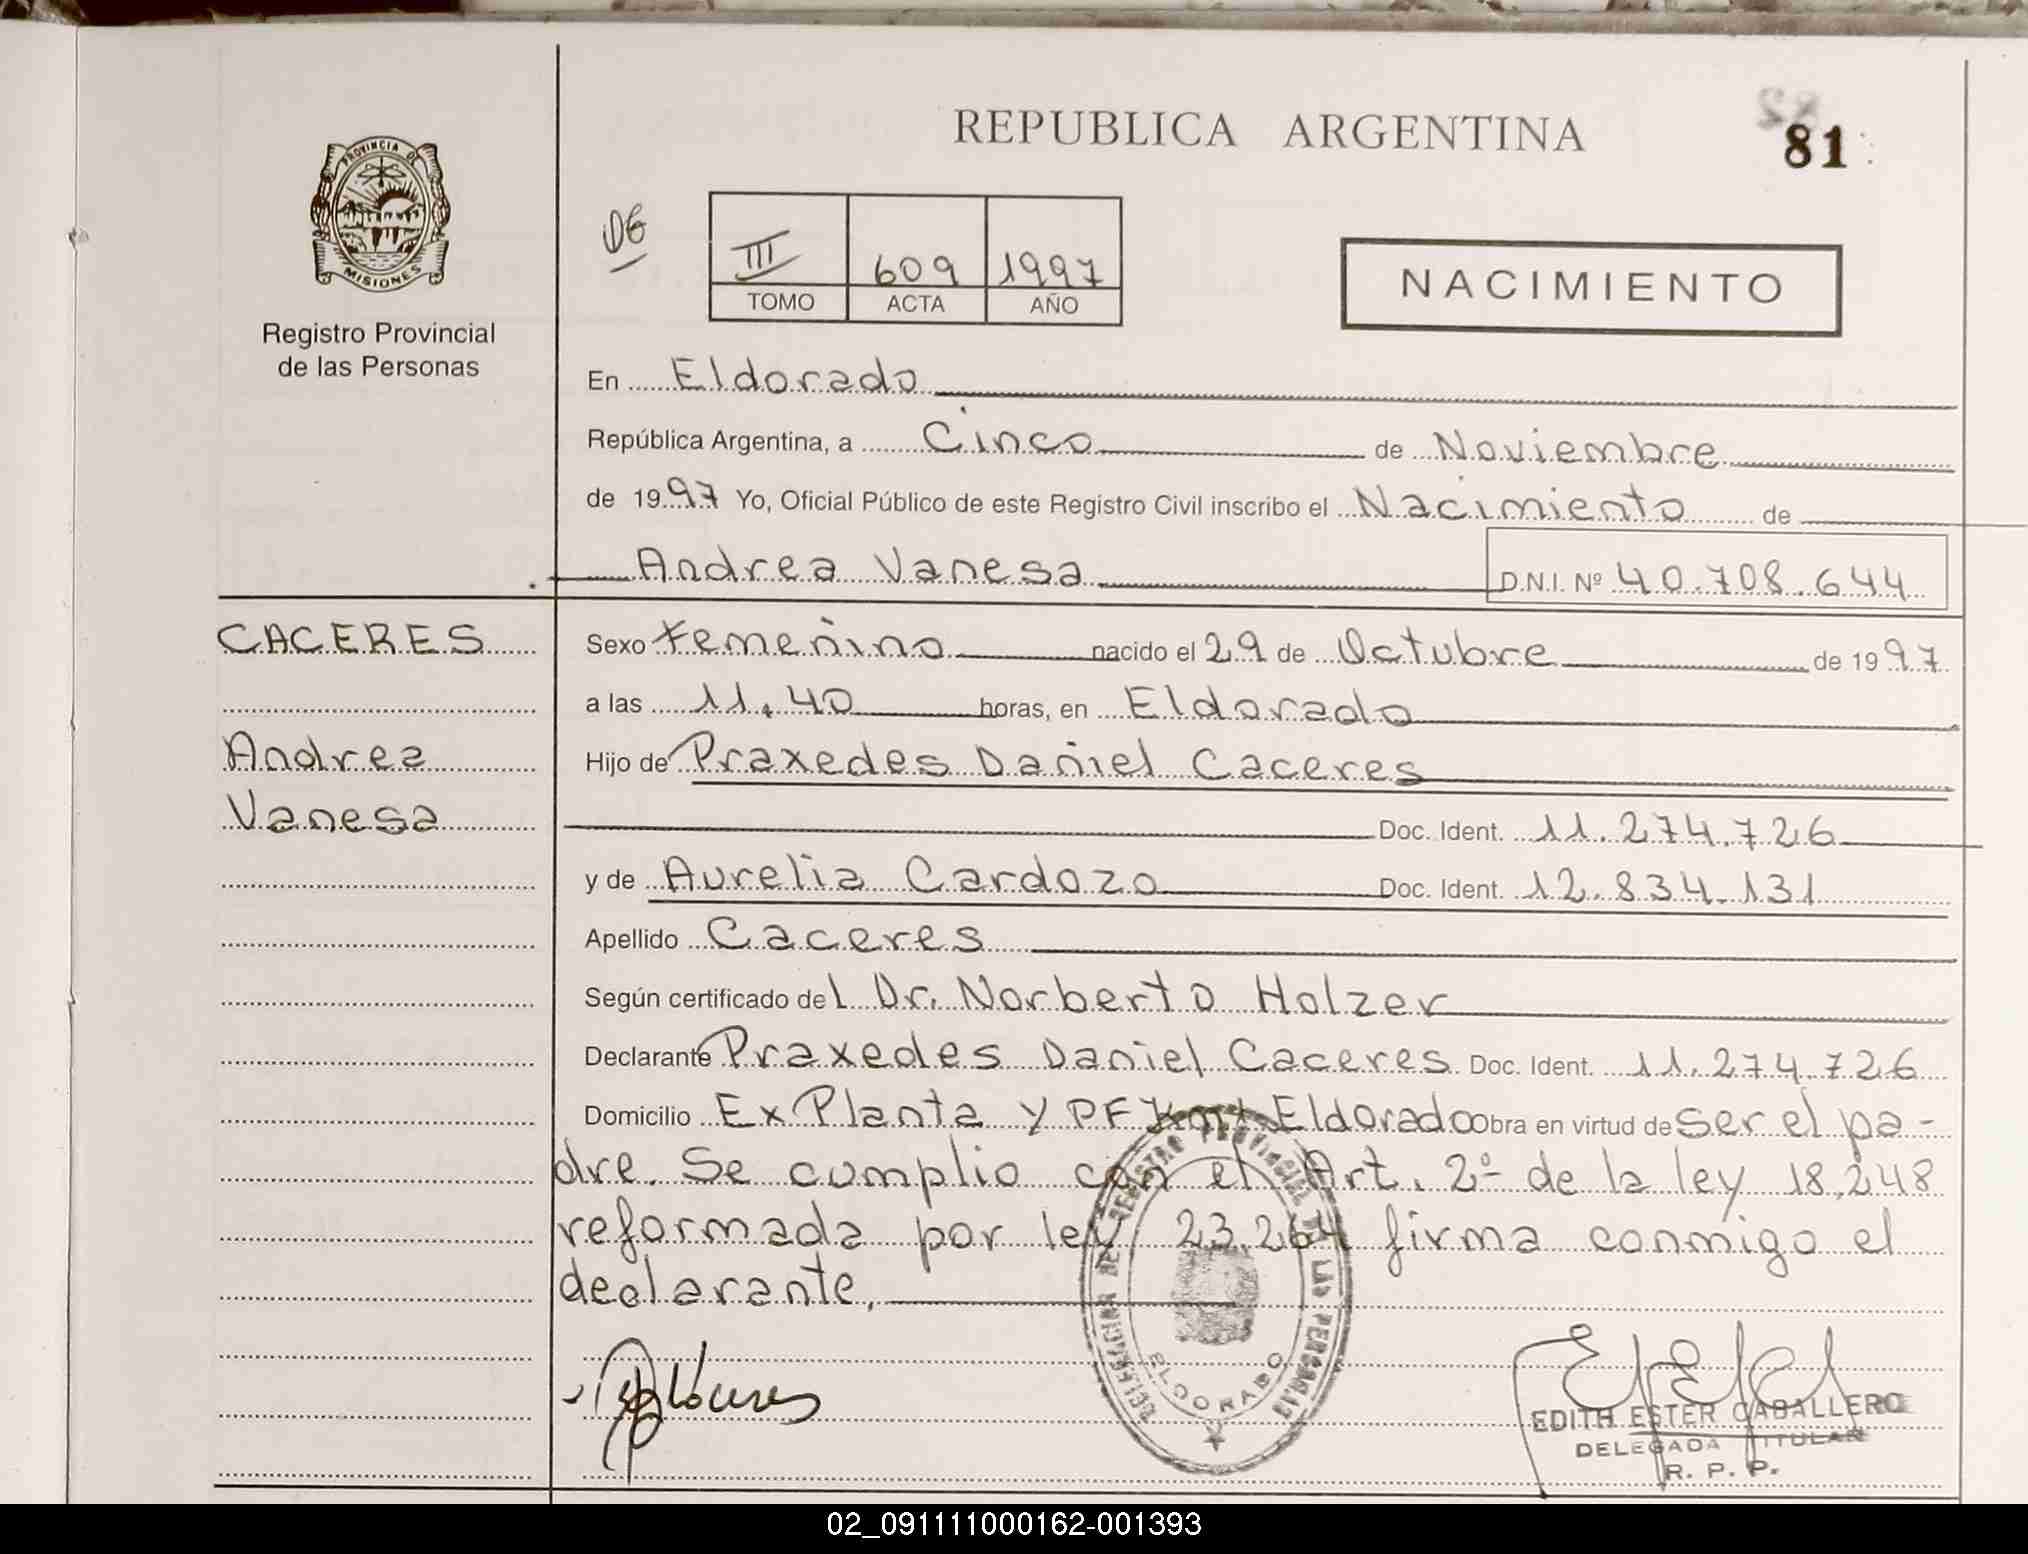 REPUBLICA ARGENTINA
81
PROVINCIA DE
MISIONES
Registro Provincial
de las Personas
DG
III 609 1997
TOMO ACTA AÑO
NACIMIENTO
En Eldorado
República Argentina, a Cinco de Noviembre
de 1997 Yo, Oficial Público de este Registro Civil inscribo el Nacimiento de
Andrea Vanesa D.N.I. Nº 40.708.644
CACERES
Andrea
Vanesa
Sexo Femenino nacido el 29 de Octubre de 1997
a las 11.40 horas, en Eldorado
Hijo de Praxedes Daniel Caceres
Doc. Ident. 11.274.726
y de Aurelia Cardozo Doc. Ident. 12.834.131
Apellido Caceres
Según certificado del Dr. Norberto Holzer
Declarante Praxedes Daniel Caceres Doc. Ident. 11.274.726
Domicilio Ex Planta y PF Eldorado Obra en virtud de ser el pa-
dre. Se cumplio con el Art. 2º de la ley 18,248
reformada por ley 23,264 firma conmigo el
declarante,
REGISTRO PROVINCIAL DE LAS PERSONAS
ELDORADO
EDITH ESTER CABALLERO
DELEGADA TITULAR
R. P. P.
02_091111000162-001393